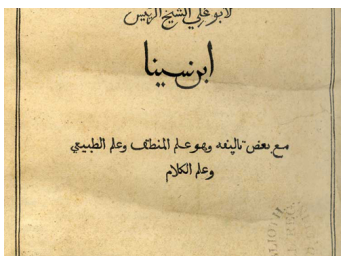 لابو علي الشيخ الرئيس
ابن سينا
مع بعض تاليفه وهو علم المنطق وعلم الطبيعي
وعلم الكلام